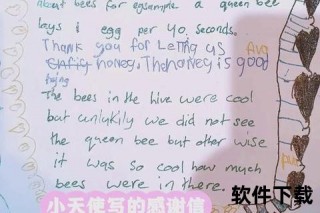 about bees for egsample a queen bee
lays 1 egg per 40 seconds.
Thank you for Leting us
honey. The honey is good
The bees in the hive were cool
but unlukily we did not see
the queen bee but other wise
it was so cool how much
bees were in there.
小天使写的感谢信
软件下载